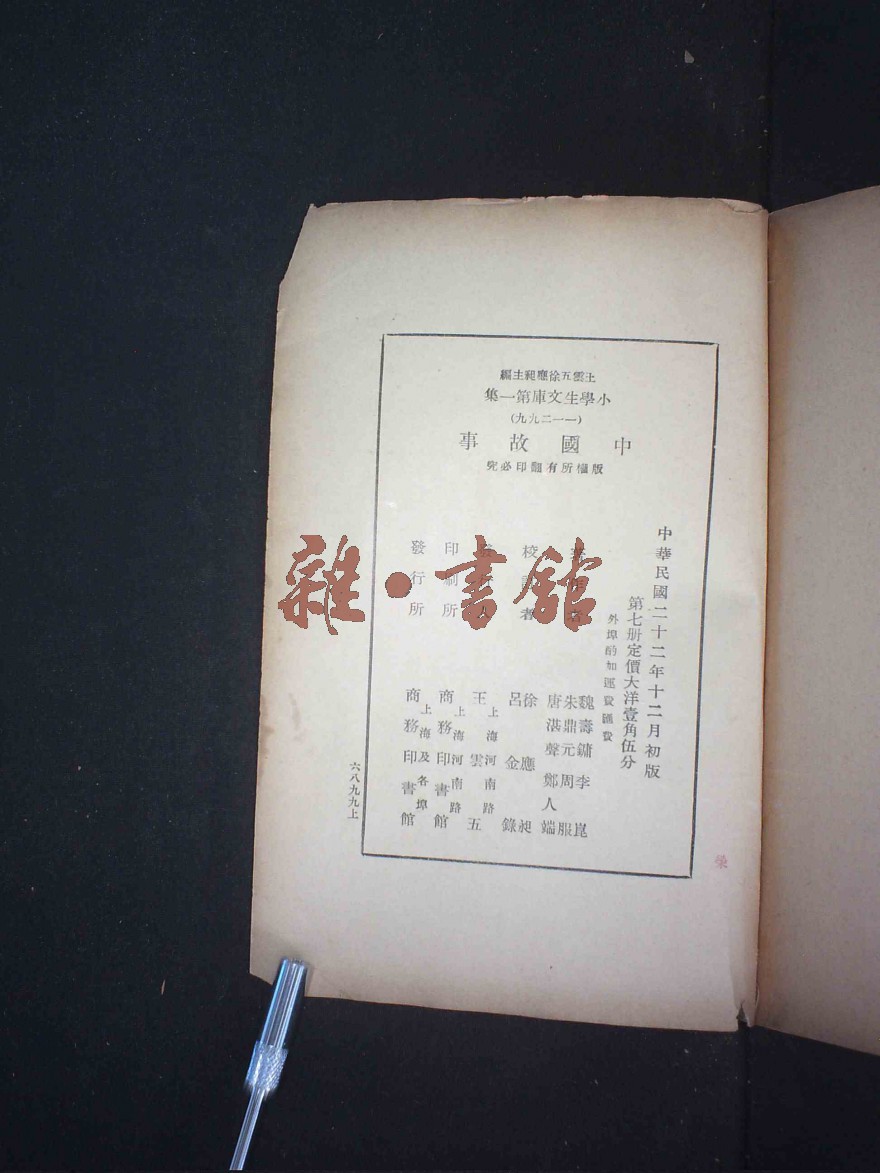 王雲五徐應昶主編
小學生文庫第一集
（一一二九九）
中國故事
版權所有翻印必究
中華民國二十二年十二月初版
第七册定價大洋壹角伍分
外埠酌加運費匯費
者
魏壽鏞 李崑
朱鼎元 周服
唐湛聲 鄭人端
校訂者
徐應昶
呂金錄
發行人
上海河南路
王雲五
印刷所
上海河南路
商務印書館
發行所
上海及各埠
商務印書館
六八九九上
雜·書館